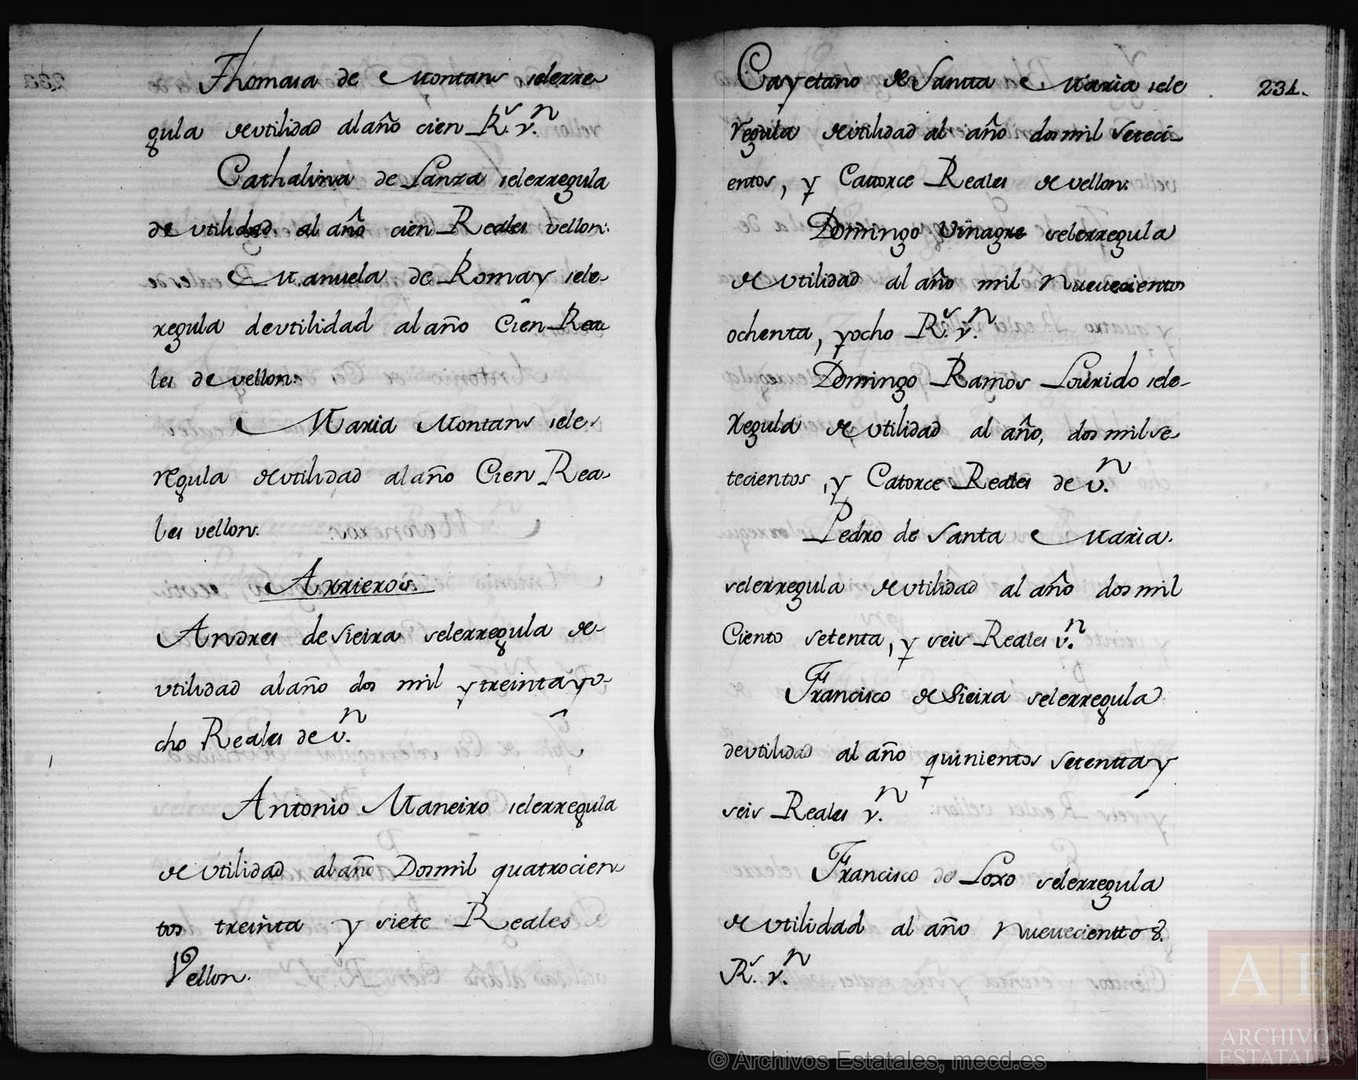 Thomasa de Montans selerre-
gula deutilidad al año cien R.^s v.^n
Cathalina de Lanza selerregula
de utilidad al año cien Reales vellon.
Manuela de Romay sele-
regula deutilidad al año Cien Rea
les de vellon.
Maria Montans sele-
regula deutilidad al año Cien Rea-
les vellon.
Arrieros.
Andres desieira selerregula de
utilidad al año dos mil y treinta yo-
cho Reales de v.^n
Antonio Maneiro selerregula
de Utilidad al año Dosmil quatrocien
tos treinta y siete Reales
Vellon.
Cayetano de Santta Maria sele
regula deutilidad al año dosmil seteci-
entos, y Cattorce Reales de vellon.
Domingo Vinagre selerregula
de Utilidad al año mil Nuevecientos
ochenta, yocho R.^s v.^n
Domingo Ramos Lourido sele-
Regula de Utilidad al año, dos mil se-
tecientos, y Catorce Reales de v.^n
Pedro de Santa Maria.
selerregula de Utilidad al año dos mil
Ciento setenta, y seis Reales v.^n
Francisco de Sieira selerregula
deutilidad al año quinientos setentta y
seis Reales v.^n
Francisco de Loxo selerregula
de Utilidad al año Nuevecienttos.
R.^s v.^n
231.
A E
ARCHIVOS
ESTATALES
© Archivos Estatales, mecd.es